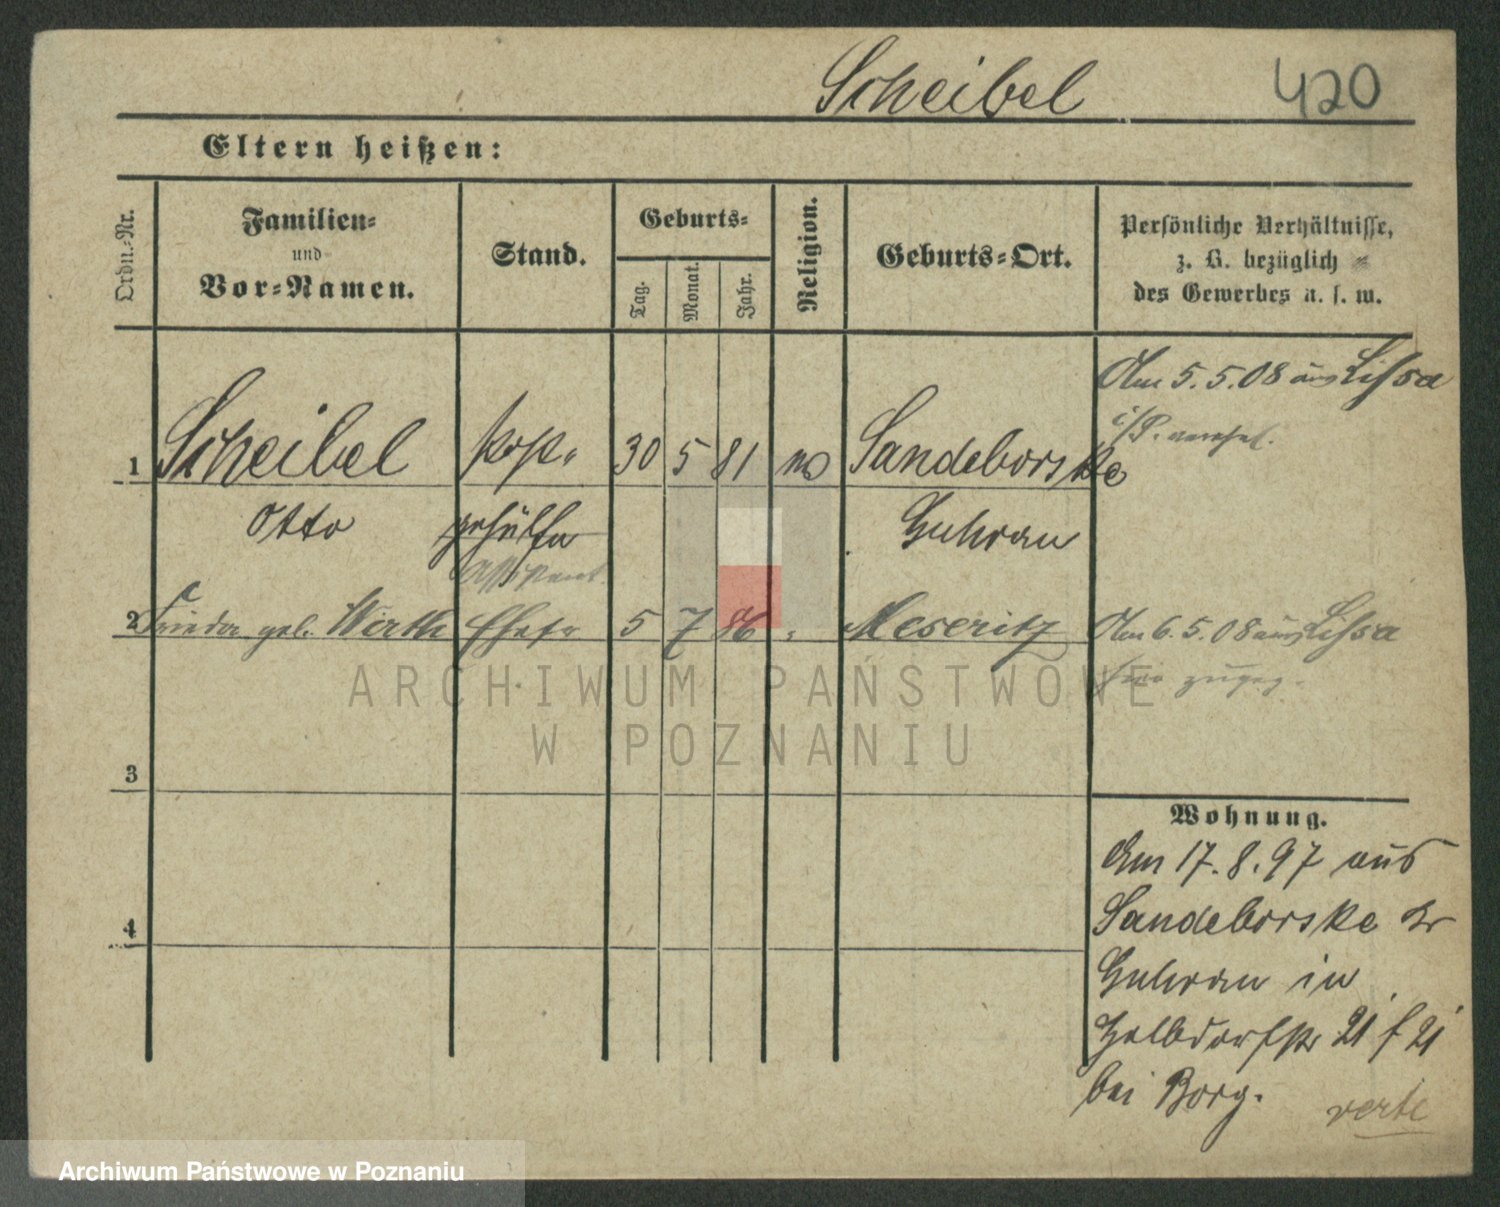 Scheibel 420
Eltern heißen:
Ordn.-Nr.
Familien-
und
Vor-Namen.
Stand.
Geburts-
Tag.
Monat.
Jahr.
Religion.
Geburts-Ort.
Persönliche Verhältnisse,
z. B. bezüglich
des Gewerbes u. s. w.
Am 5.5.08 aus Lissa
i/P.
1 Scheibel Post- 30 5 81 Sandeborske
Otto gehülfe Guhrau
Assistent
2 Frieda geb. Wirth Ehefr 5 7 86 " Meseritz Am 6.5.08 aus Lissa
hier zugez.
ARCHIWUM PAŃSTWOWE
W POZNANIU
3
4
Wohnung.
Am 17.8.97 aus
Sandeborske Kr
Guhrau in
Halbdorfstr 21
bei Borg.
verte
Archiwum Państwowe w Poznaniu